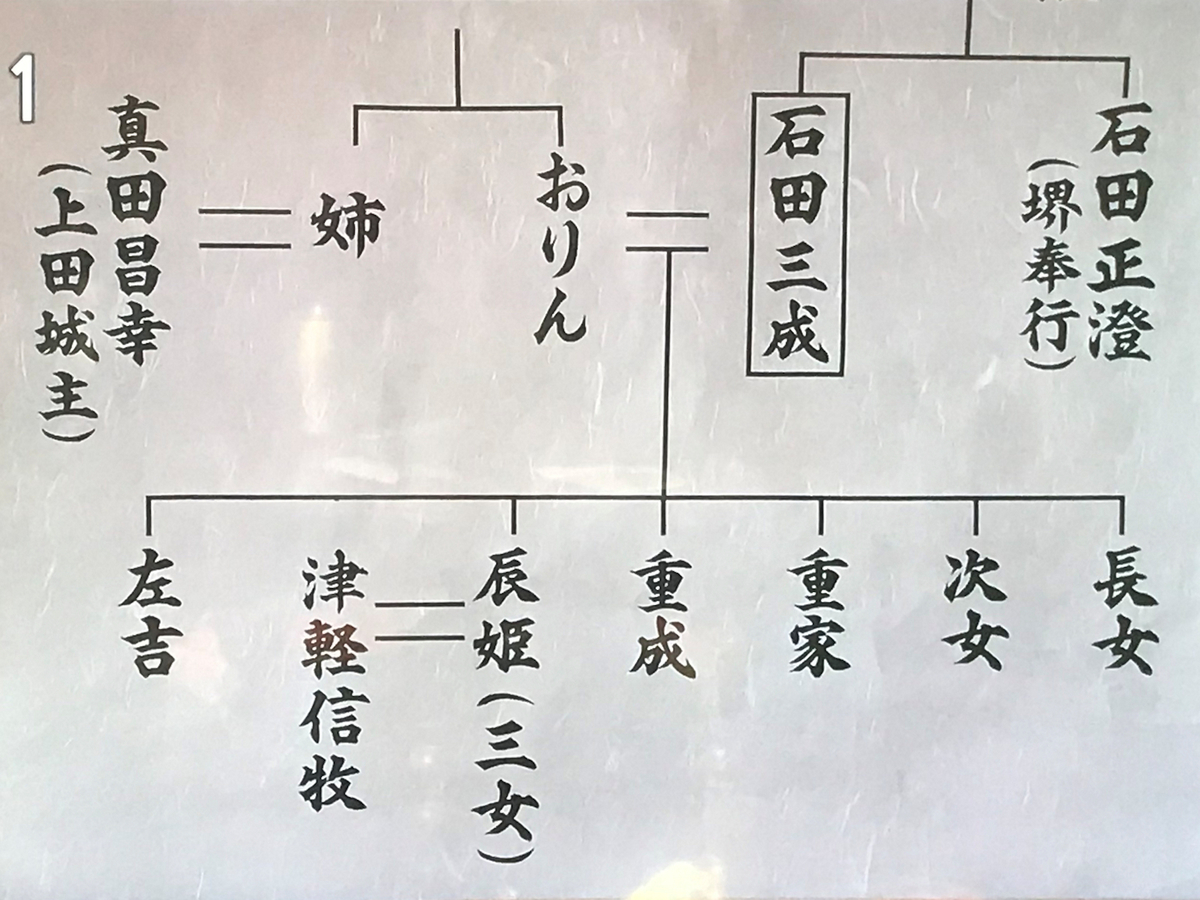 1
石田正澄
(堺奉行)
石田三成
おりん
姉
真田昌幸
(上田城主)
長女
次女
重家
重成
辰姫(三女)
津軽信牧
左吉